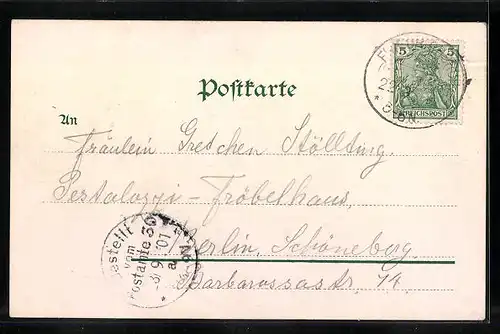 Postkarte
5 5
REICHSPOST
An
Fräulein Gretchen Stöllting,
Pestalozzi-Fröbelhaus,
Berlin, Schöneberg.
Barbarossastr. 74
Bestellt
vom
Postamte 30
9 01